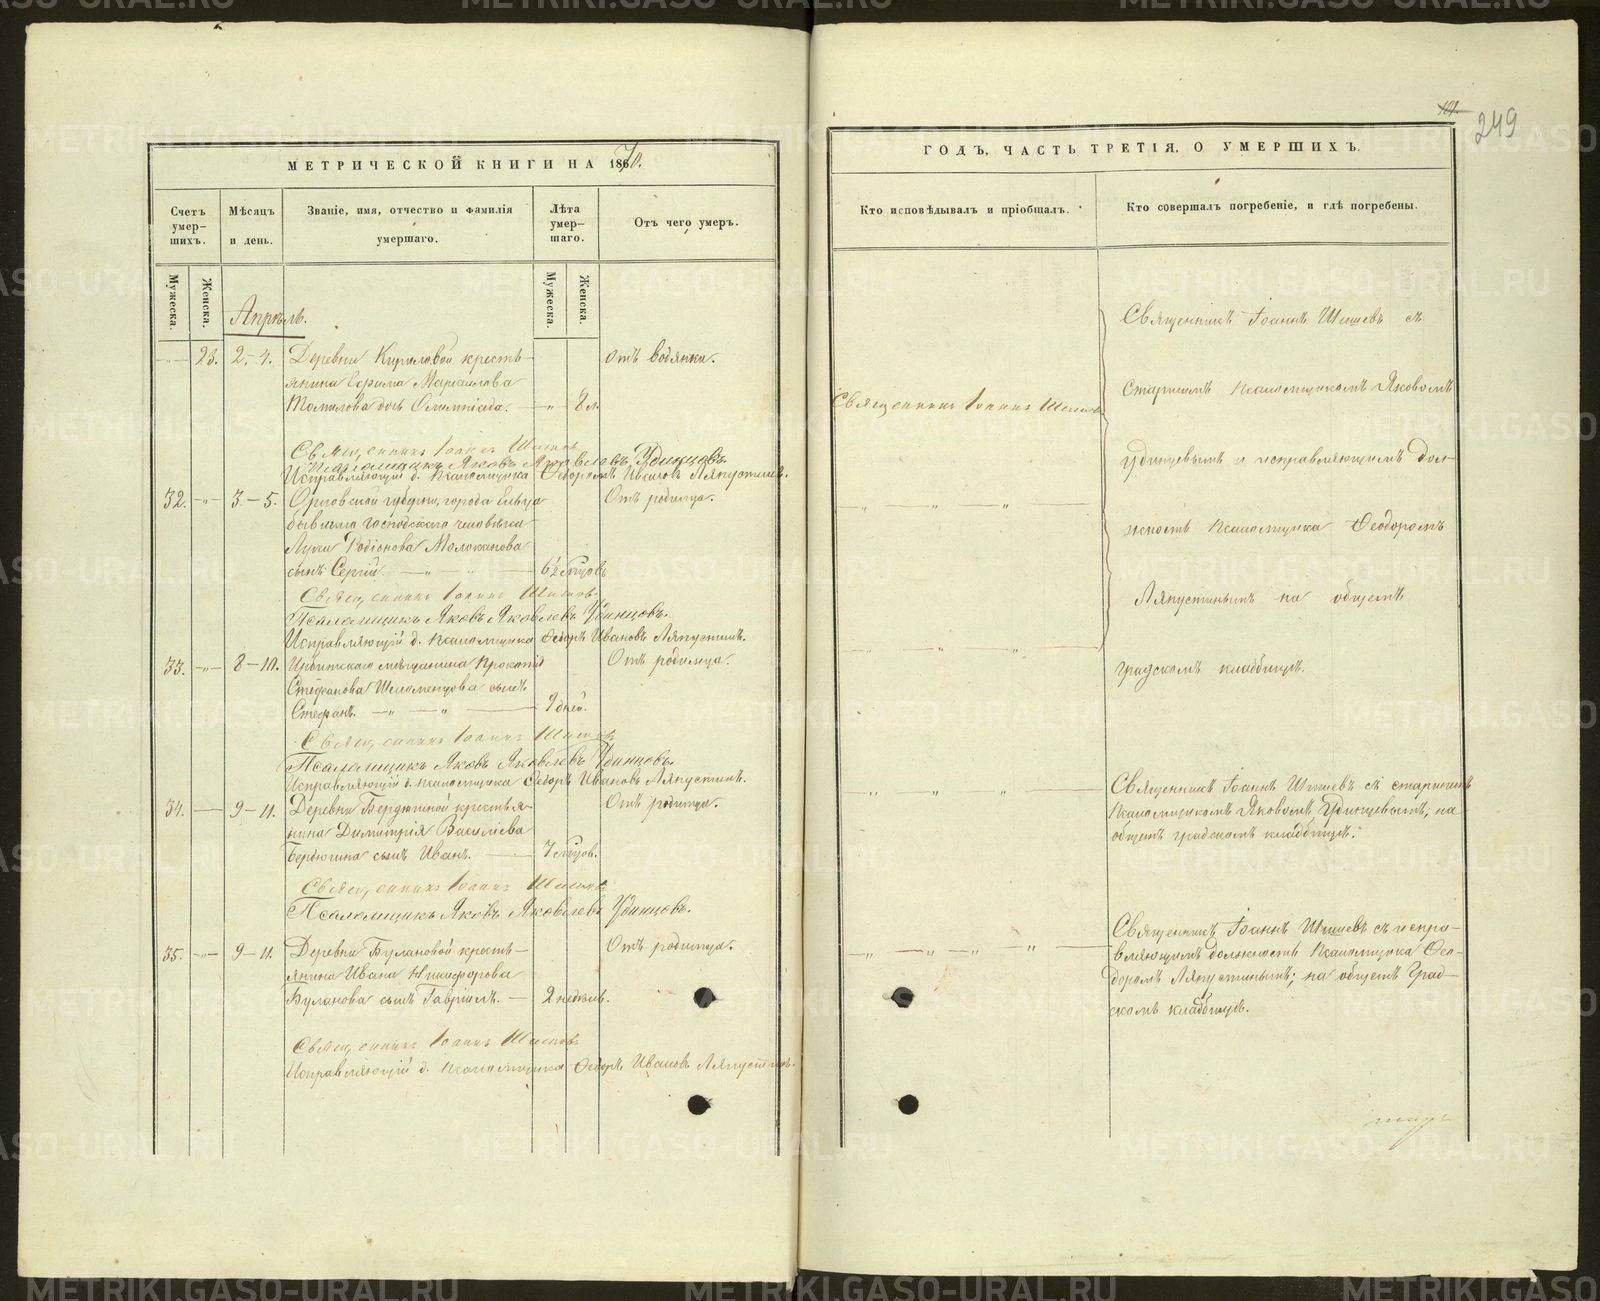 МЕТРИЧЕСКОЙ КНИГИ НА 1870.
Счетъ умер-шихъ.
Мѣсяцъ и день.
Званіе, имя, отчество и фамилія умершаго.
Лѣта умер-шаго.
Отъ чего умеръ.
Мужеска.
Женска.
Мужеска.
Женска.
Апрѣль.
23. 2.-4. Деревни Кириловой кресть-
янина Ефрима
Томилова дочь Олимпіада. — „ 8 л.
Отъ водянки.
Священникъ Іоаннъ Шишевъ
Псаломщикъ Яковъ Яковлевъ Удинцовъ.
Исправляющій д. псаломщика Ѳедоръ Ивановъ Ляпустинъ.
32. -„- 3-5. Орловской губерніи, города Ельца
бывшаго господскаго человѣка
Луки Родіонова Молоканова
сынъ Сергій. — „ — „ — 6½ мѣсцовъ
Отъ родимца.
Священникъ Іоаннъ Шишевъ
Псаломщикъ Яковъ Яковлевъ Удинцовъ.
Исправляющій д. псаломщика Ѳедоръ Ивановъ Ляпустинъ.
33. -„- 8-10. Ирбитскаго мѣщанина Прокопія
Стефанова сынъ
Стефанъ. — „ — „ — дней.
Отъ родимца.
Священникъ Іоаннъ Шишевъ
Псаломщикъ Яковъ Яковлевъ Удинцовъ.
Исправляющій д. псаломщика Ѳедоръ Ивановъ Ляпустинъ.
34. — 9-11. Деревни Бердюгиной крестья-
нина Димитрія Василіева
Бердюгина сынъ Иванъ. — 7 мѣсцов.
Отъ родимца.
Священникъ Іоаннъ Шишевъ
Псаломщикъ Яковъ Яковлевъ Удинцовъ.
35. -„- 9-11. Деревни Булановой кресть-
янина Ивана Никифорова
Буланова сынъ Гавріилъ. — 2 недѣли.
Отъ родимца.
Священникъ Іоаннъ Шишевъ
Исправляющій д. псаломщика Ѳедоръ Ивановъ Ляпустинъ.
249
ГОДЪ, ЧАСТЬ ТРЕТІЯ, О УМЕРШИХЪ.
Кто исповѣдывалъ и пріобщалъ.
Кто совершалъ погребеніе, и гдѣ погребены.
Священникъ Іоаннъ Шишевъ
Священникъ Іоаннъ Шишевъ съ
старшимъ псаломщикомъ Яковомъ
Удинцевымъ и исправляющимъ дол-
жность псаломщика Ѳеодоромъ
Ляпустинымъ на общемъ
градскомъ кладбищѣ.
Священникъ Іоаннъ Шишевъ съ старшимъ
псаломщикомъ Яковомъ Удинцевымъ, на
общемъ градскомъ кладбищѣ.
Священникъ Іоаннъ Шишевъ съ испра-
вляющимъ должность псаломщика Ѳео-
доромъ Ляпустинымъ; на общемъ град-
скомъ кладбищѣ.
METRIKI.GASO-URAL.RU